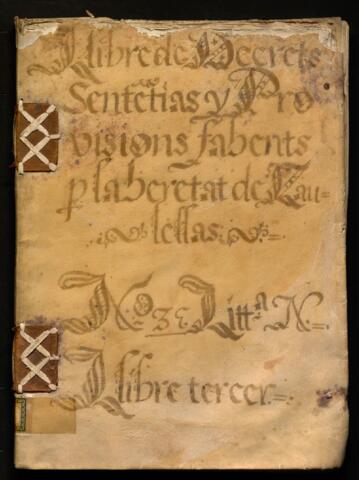 Llibre de Decrets
Sentẽtias y Pro
visions fahents
p la heretat de Cau=
lellas
Llibre tercer.